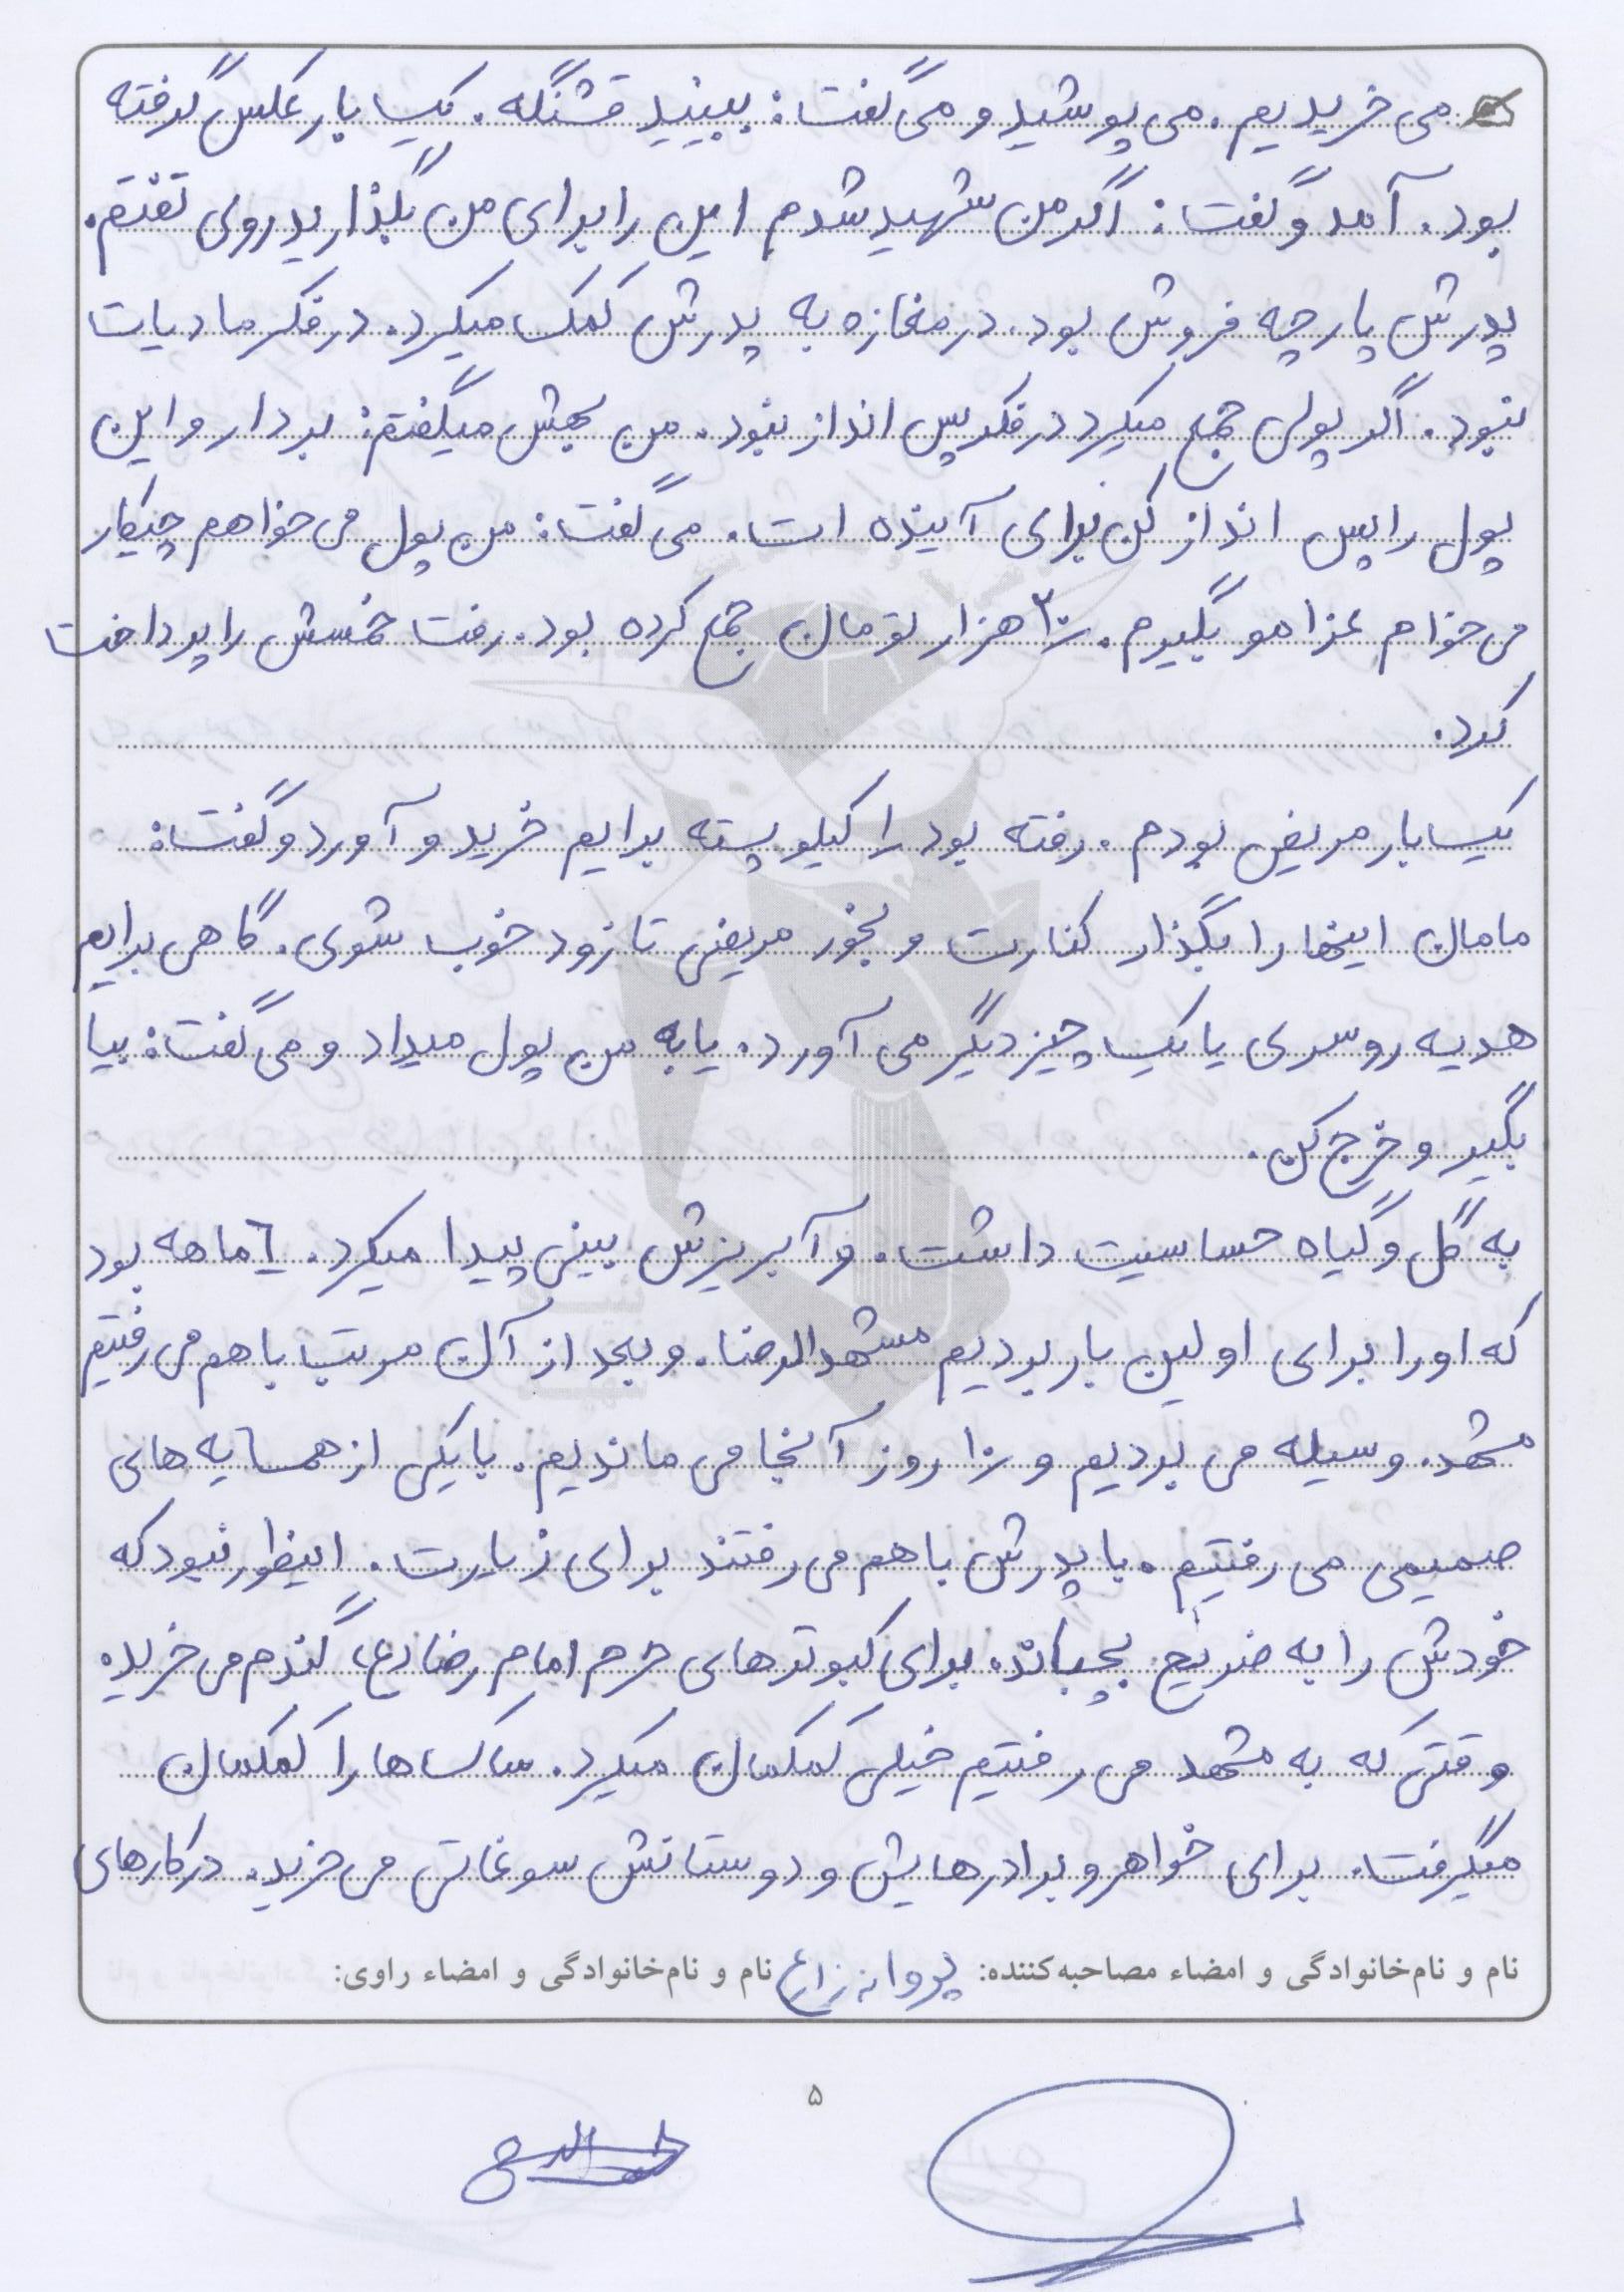 می خریدیم. می پوشید و می گفت: ببینید قشنگه. یکبار عکس گرفته
بود. آمد و گفت: اگر من شهید شدم این را برای من بگذارید روی تفتم.
پدرش پارچه فروش بود. در مغازه به پدرش کمک میکرد. در فکر مادیات
نبود. اگر پولی جمع میکرد در فکر پس انداز نبود. من بهش میگفتم: بردار و این
پول را پس انداز کن برای آینده ات. می گفت: من پول می خواهم چیکار
می خوام عزامو بگیرم. ۲۰ هزار تومان جمع کرده بود. رفت خمسش را پرداخت
کرد.
یکبار مریض بودم. رفته بود ۱ کیلو پسته برایم خرید و آورد و گفت:
مامان اینها را بگذار کنارت و بخور مریضی تا زود خوب شوی. گاهی برایم
هدیه روسری یا یک چیز دیگر می آورد. یا به من پول میداد و می گفت: بیا
بگیر و خرج کن.
به گل و گیاه حساسیت داشت. و آبریزش بینی پیدا میکرد. ۶ ماهه بود
که او را برای اولین بار بردیم مشهدالرضا. و بعد از آن مرتب با هم می رفتیم
مشهد. وسیله می بردیم و ۱۰ روز آنجا می ماندیم. با یکی از همسایه های
صمیمی می رفتیم. با پدرش با هم می رفتند برای زیارت. اینطور نبود که
خودش را به ضریح بچباند. برای کبوترهای حرم امام رضا (ع) گندم می خرید.
وقتی که به مشهد می رفتیم خیلی کمکمان میکرد. ساک ها را کمکمان
میگرفت. برای خواهر و برادرهایش و دوستانش سوغاتی می خرید. در کارهای
نام و نام‌خانوادگی و امضاء مصاحبه‌کننده: پروانه زارع نام و نام‌خانوادگی و امضاء راوی:
۵